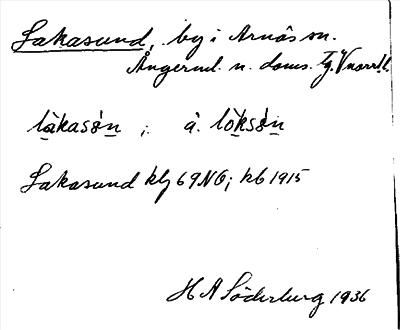 Lakasund, by i Arnäs sn.
Ångerml. n. doms. fg. Vnorrl.
làkasøn ; å. lòksøn
Lakasund klj 69 NO; kb 1915
H A Söderburg 1936